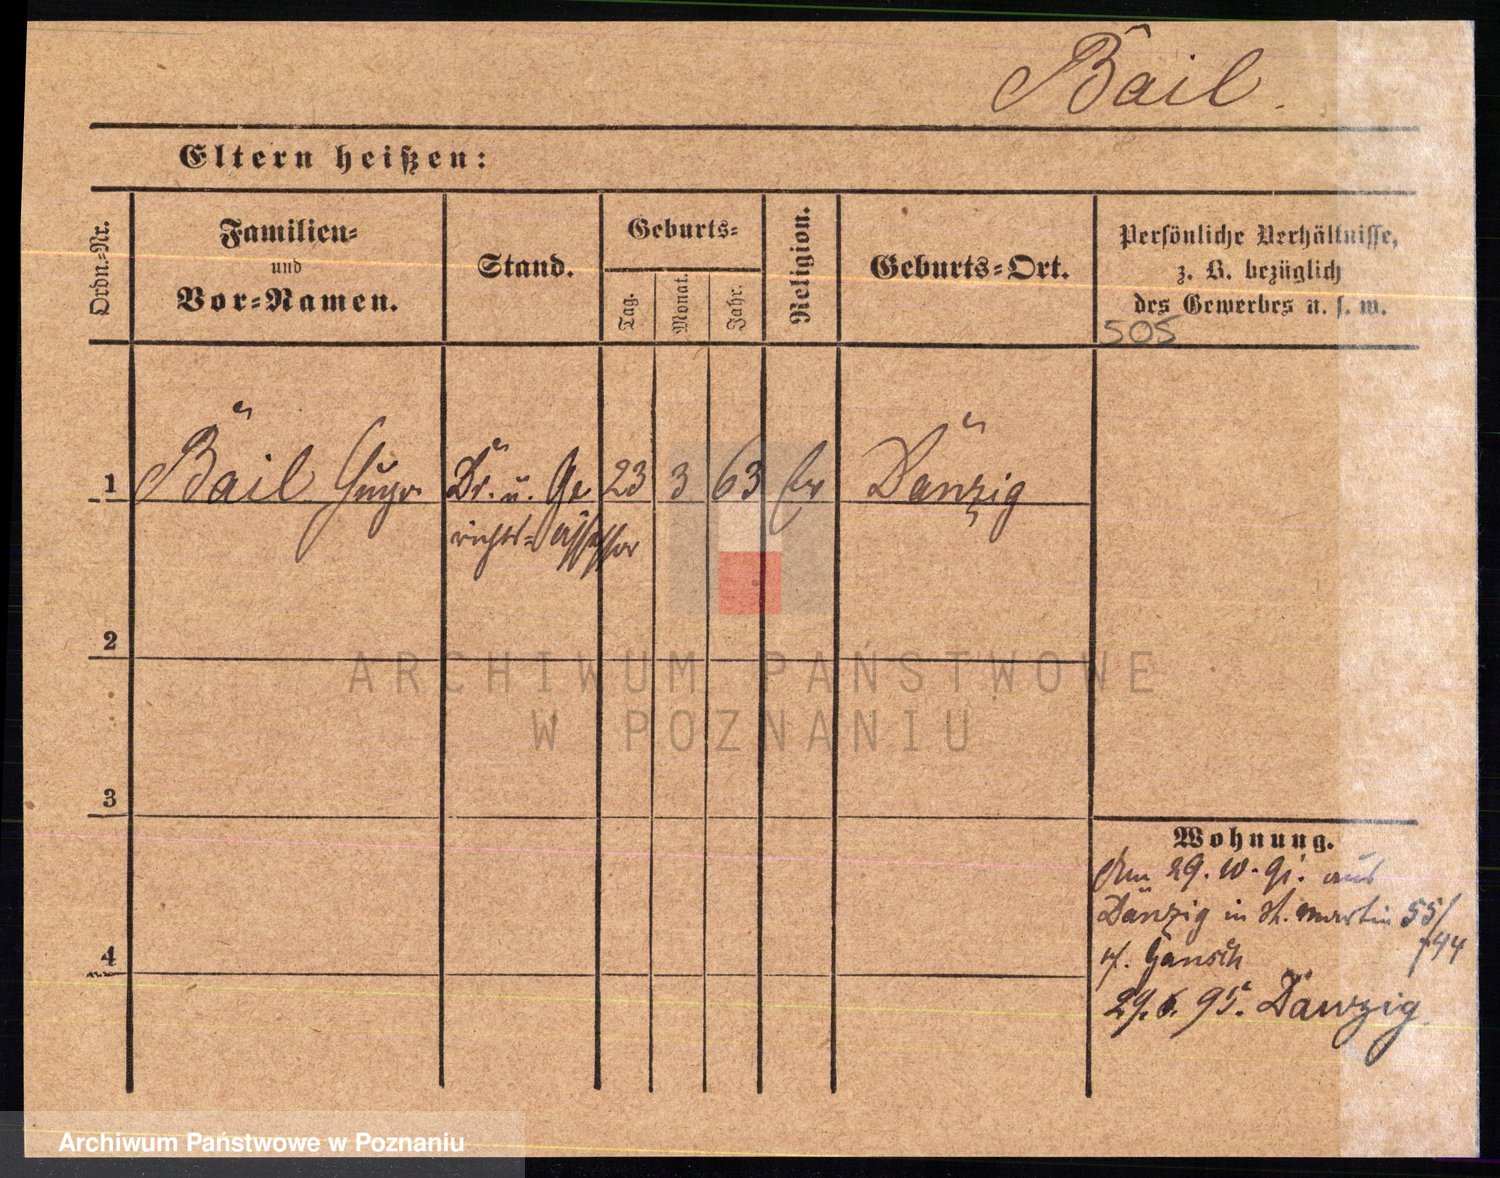 Bail.
Eltern heißen:
Ordn.-Nr.
Familien-
und
Vor-Namen.
Stand.
Geburts-
Tag.
Monat.
Jahr.
Religion.
Geburts-Ort.
Persönliche Verhältnisse,
z. B. bezüglich
des Gewerbes u. s. w.
505
1
Bail
Dr. u. Ge
23
3
63
Danzig
richts-Assessor
2
3
4
Wohnung.
aus
Danzig in St. Martin 55/
44
29. 6. 95. Danzig.
ARCHIWUM PAŃSTWOWE
W POZNANIU
Archiwum Państwowe w Poznaniu